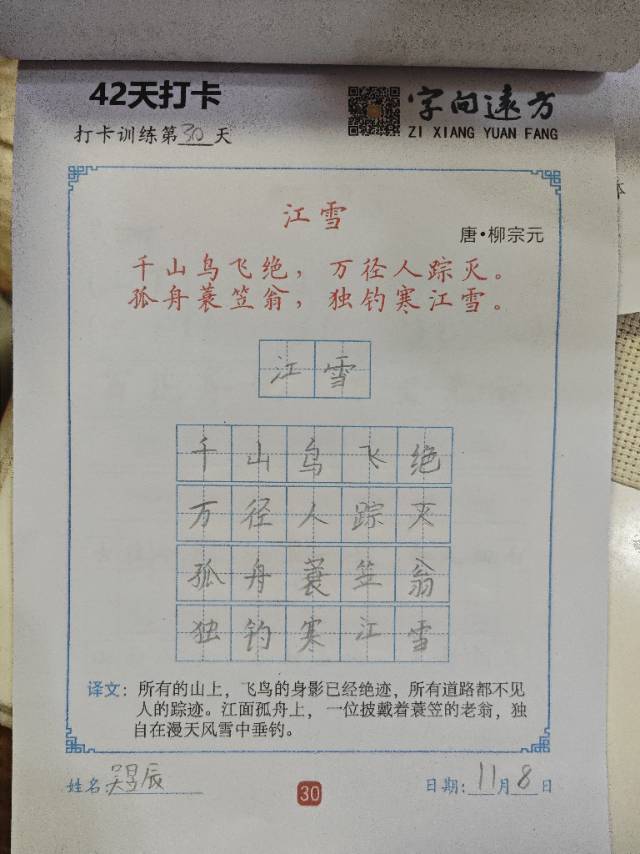 42天打卡
字向远方
ZI XIANG YUAN FANG
打卡训练第30天
江雪
唐·柳宗元
千山鸟飞绝，万径人踪灭。
孤舟蓑笠翁，独钓寒江雪。
江雪
千山鸟飞绝
万径人踪灭
孤舟蓑笠翁
独钓寒江雪
译文：所有的山上，飞鸟的身影已经绝迹，所有道路都不见
人的踪迹。江面孤舟上，一位披戴着蓑笠的老翁，独
自在漫天风雪中垂钓。
姓名吴昱辰
30
日期：11月8日